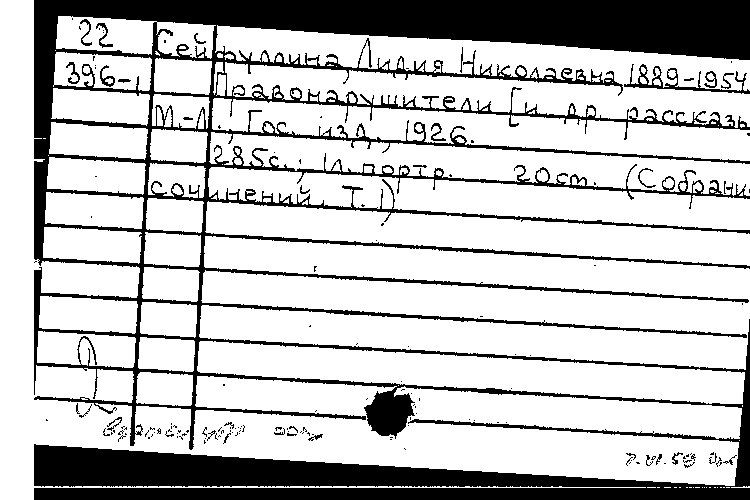 22 Сейфуллина, Лидия Николаевна, 1889-1954.
396-1 Правонарушители [и др. рассказы
М.-Л., Гос. изд., 1926.
285с.; 1л. портр. 20см. (Собрание
сочинений. Т. 1)